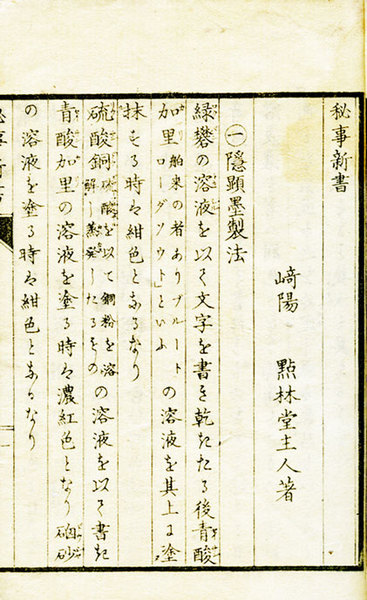 秘事新書
﨑陽　點林堂主人著
㊀隱顕墨製法
緑礬の溶液を以て文字を書き乾きたる後青酸
加里舶来の者ありブルートローダソウト」といふの溶液を其上に塗
抹する時は紺色となるなり
硫酸銅硫酸を以て銅粉を溶解し蒸発したるものの溶液を以て書き
青酸加里の溶液を塗る時は濃紅色となり硇砂
の溶液を塗る時は紺色となるなり